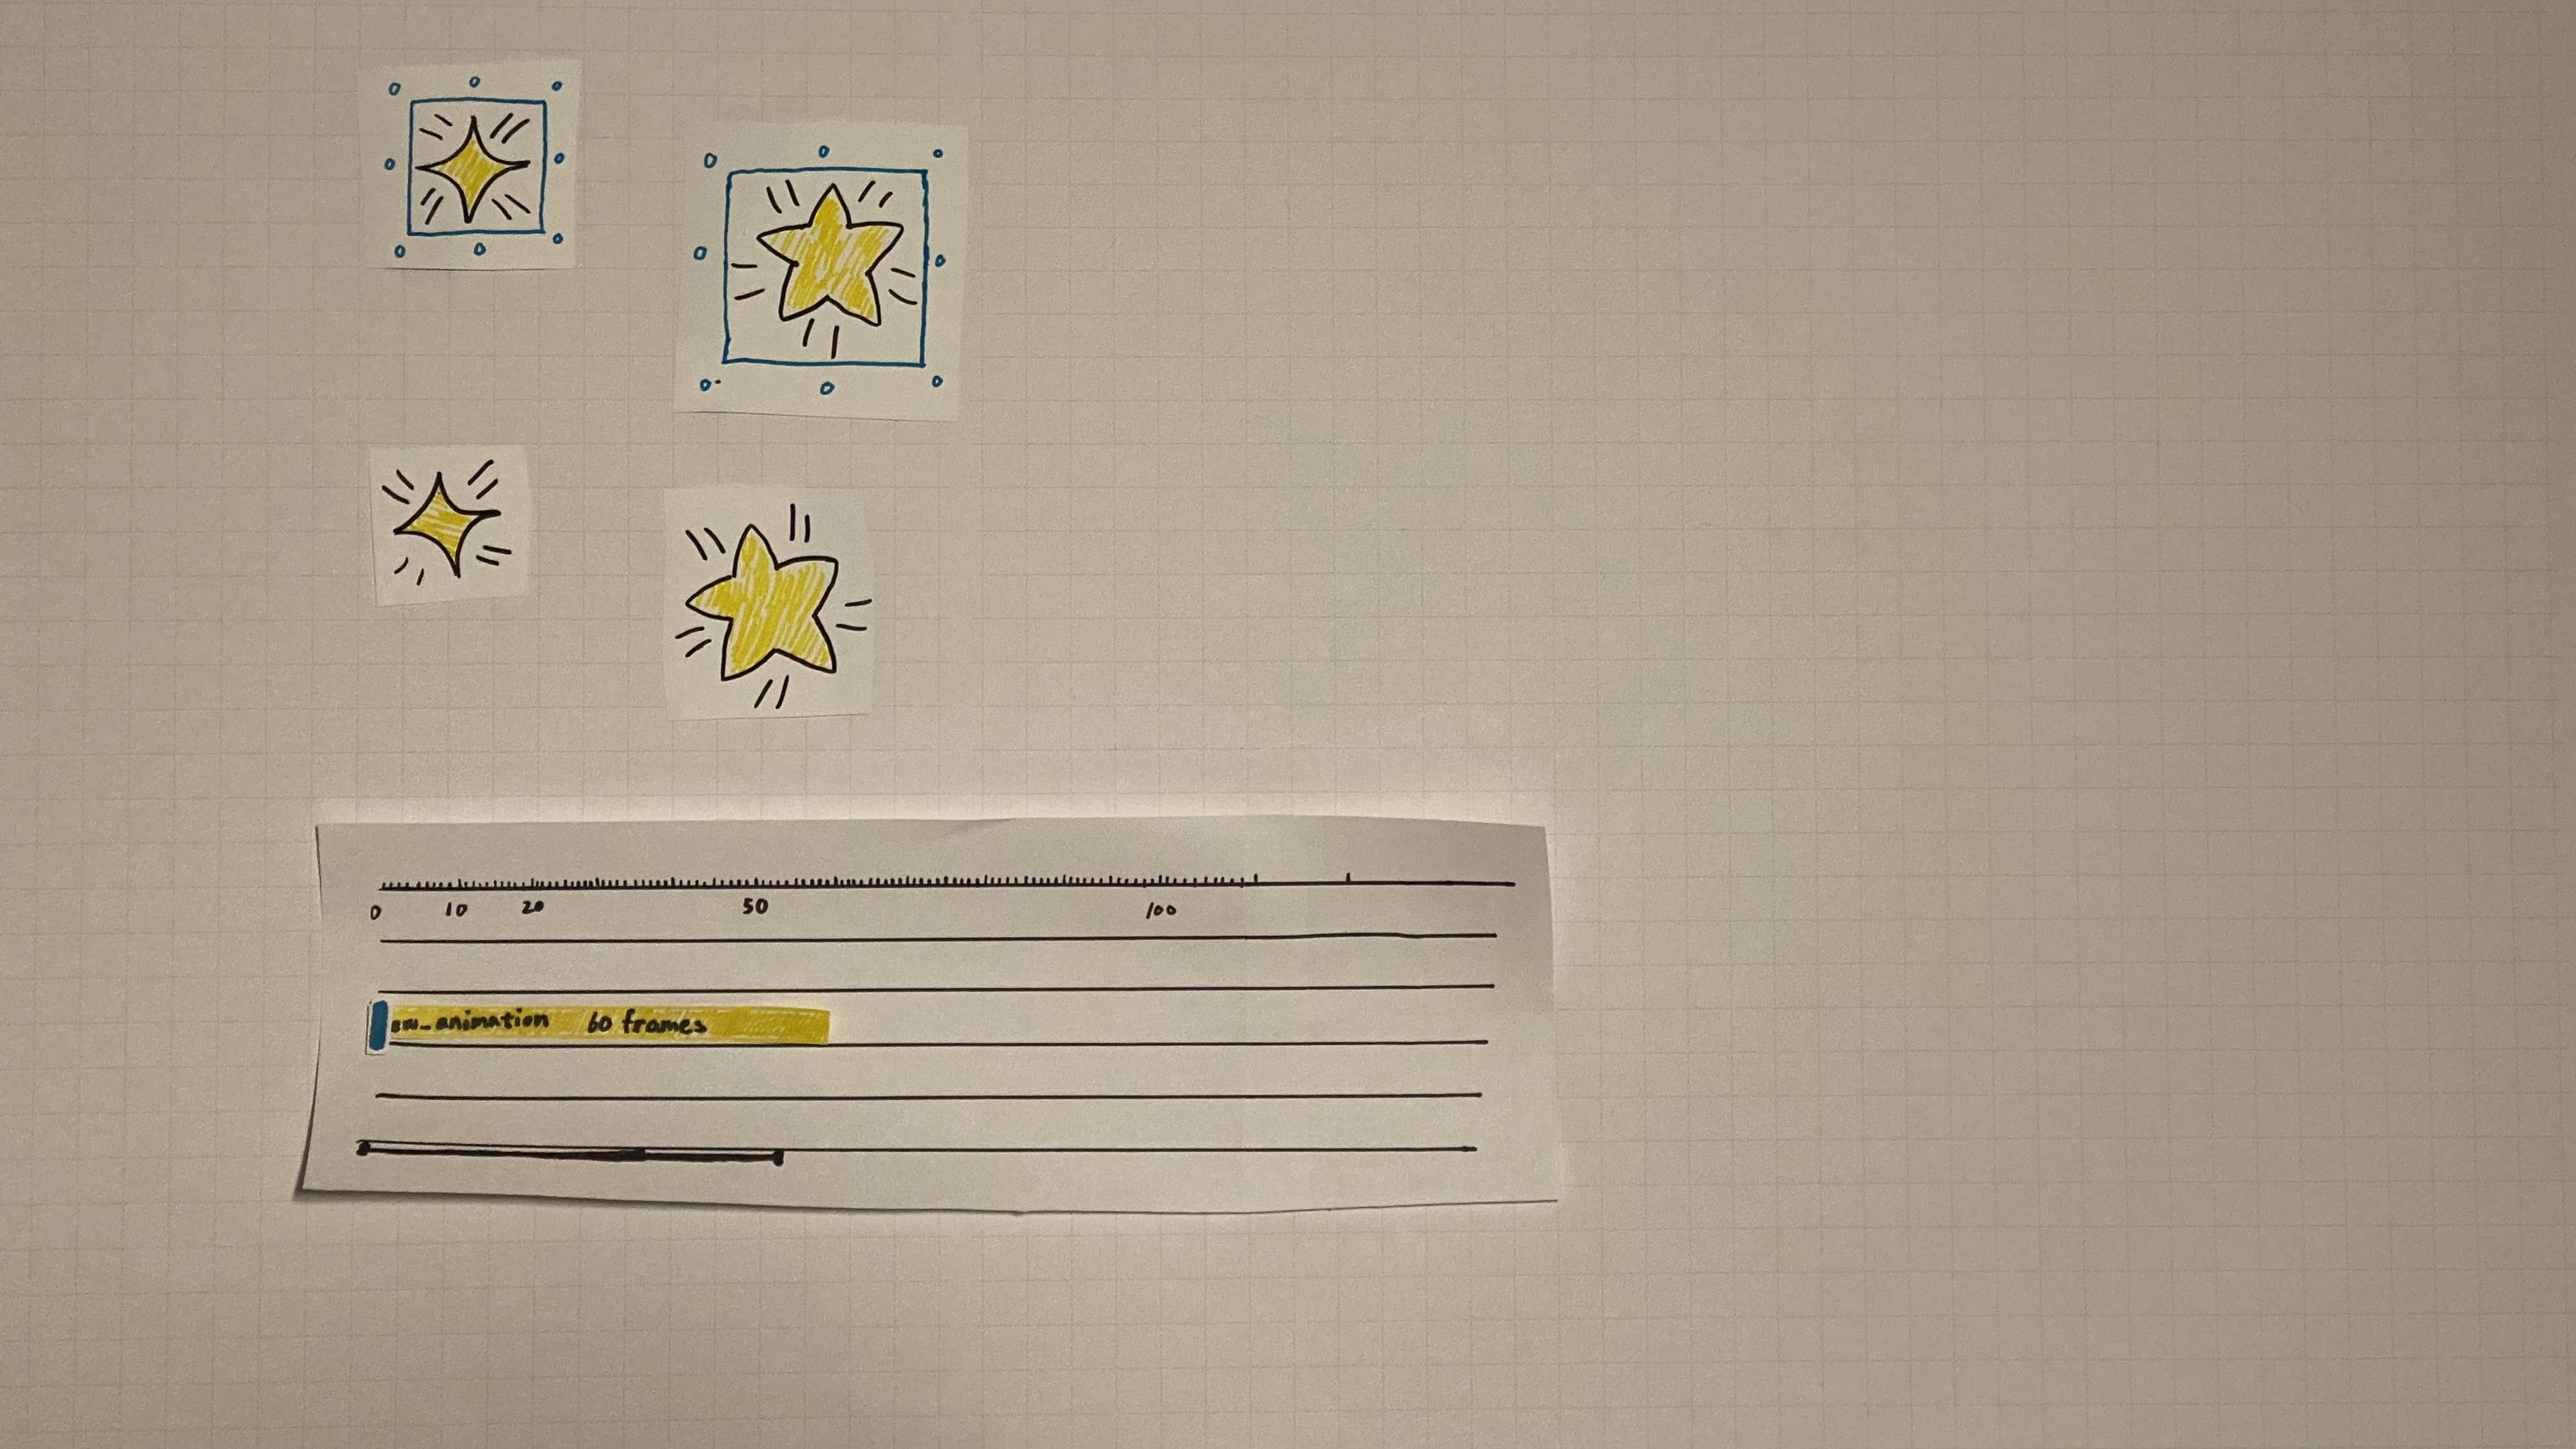 0 10 20 50 100
_animation 60 frames